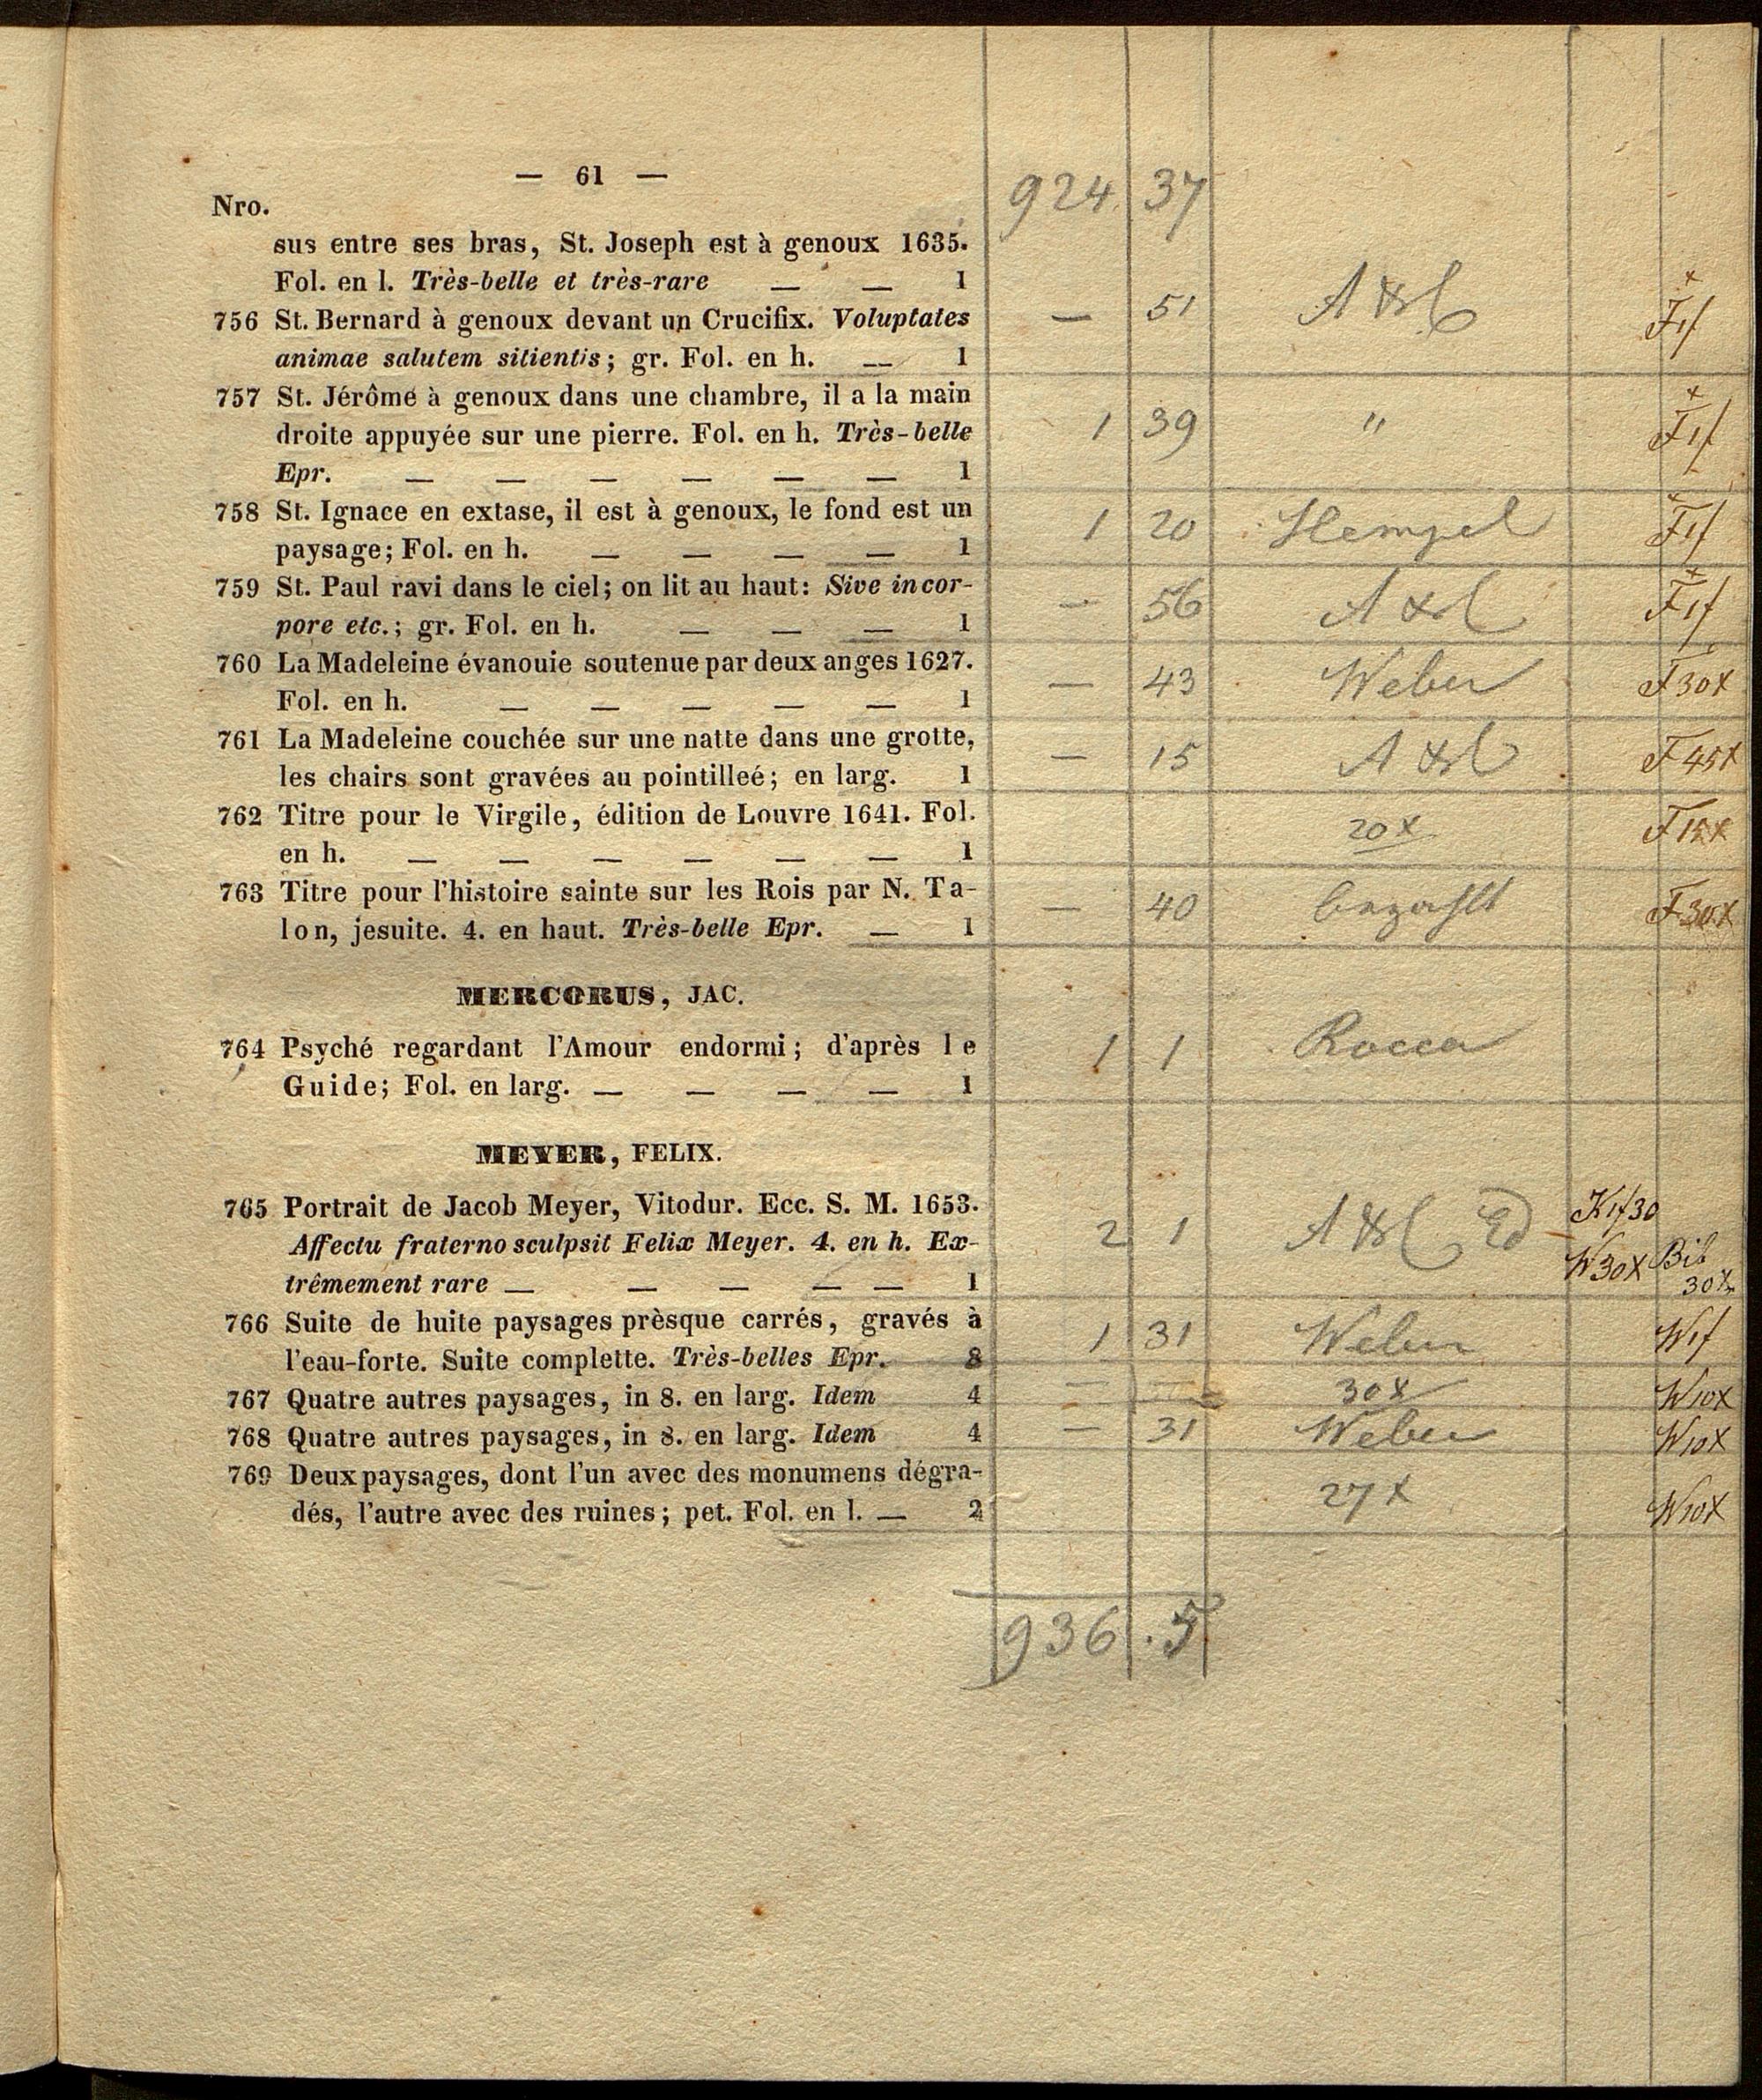 — 61 —
924. 37
Nro.
sus entre ses bras, St. Joseph est à genoux 1635.
Fol. en l. Très-belle et très-rare — — 1
756 St. Bernard à genoux devant un Crucifix. Voluptates — 51 F1f
animae salutem sitientis; gr. Fol. en h. — 1
757 St. Jérôme à genoux dans une chambre, il a la main
droite appuyée sur une pierre. Fol. en h. Très-belle 1 39 " F1f
Epr. — — — — — — 1
758 St. Ignace en extase, il est à genoux, le fond est un 1 20 Hempel F1f
paysage; Fol. en h. — — — — 1
759 St. Paul ravi dans le ciel; on lit au haut: Sive in cor- — 56 F1f
pore etc.; gr. Fol. en h. — — — 1
760 La Madeleine évanouie soutenue par deux anges 1627. — 43 Weber F30x
Fol. en h. — — — — — 1
761 La Madeleine couchée sur une natte dans une grotte, — 15 F45x
les chairs sont gravées au pointilleé; en larg. 1
762 Titre pour le Virgile, édition de Louvre 1641. Fol. 20x F15x
en h. — — — — — — 1
763 Titre pour l'histoire sainte sur les Rois par N. Ta- — 40 bezahlt F30x
lon, jesuite. 4. en haut. Très-belle Epr. — 1
MERCORUS, JAC.
764 Psyché regardant l'Amour endormi; d'après le 1 1 Rocca
Guide; Fol. en larg. — — — — 1
MEYER, FELIX.
765 Portrait de Jacob Meyer, Vitodur. Ecc. S. M. 1653. K1f30
Affectu fraterno sculpsit Felix Meyer. 4. en h. Ex- 2 1 Ed W30x Bib
trêmement rare — — — — — 1 30x
766 Suite de huite paysages prèsque carrés, gravés à 1 31 Weber W1f
l'eau-forte. Suite complette. Très-belles Epr. 8
767 Quatre autres paysages, in 8. en larg. Idem 4 — 30x W10x
768 Quatre autres paysages, in 8. en larg. Idem 4 — 31 Weber W10x
769 Deux paysages, dont l'un avec des monumens dégra- 27x W10x
dés, l'autre avec des ruines; pet. Fol. en l. — 2
936. 5